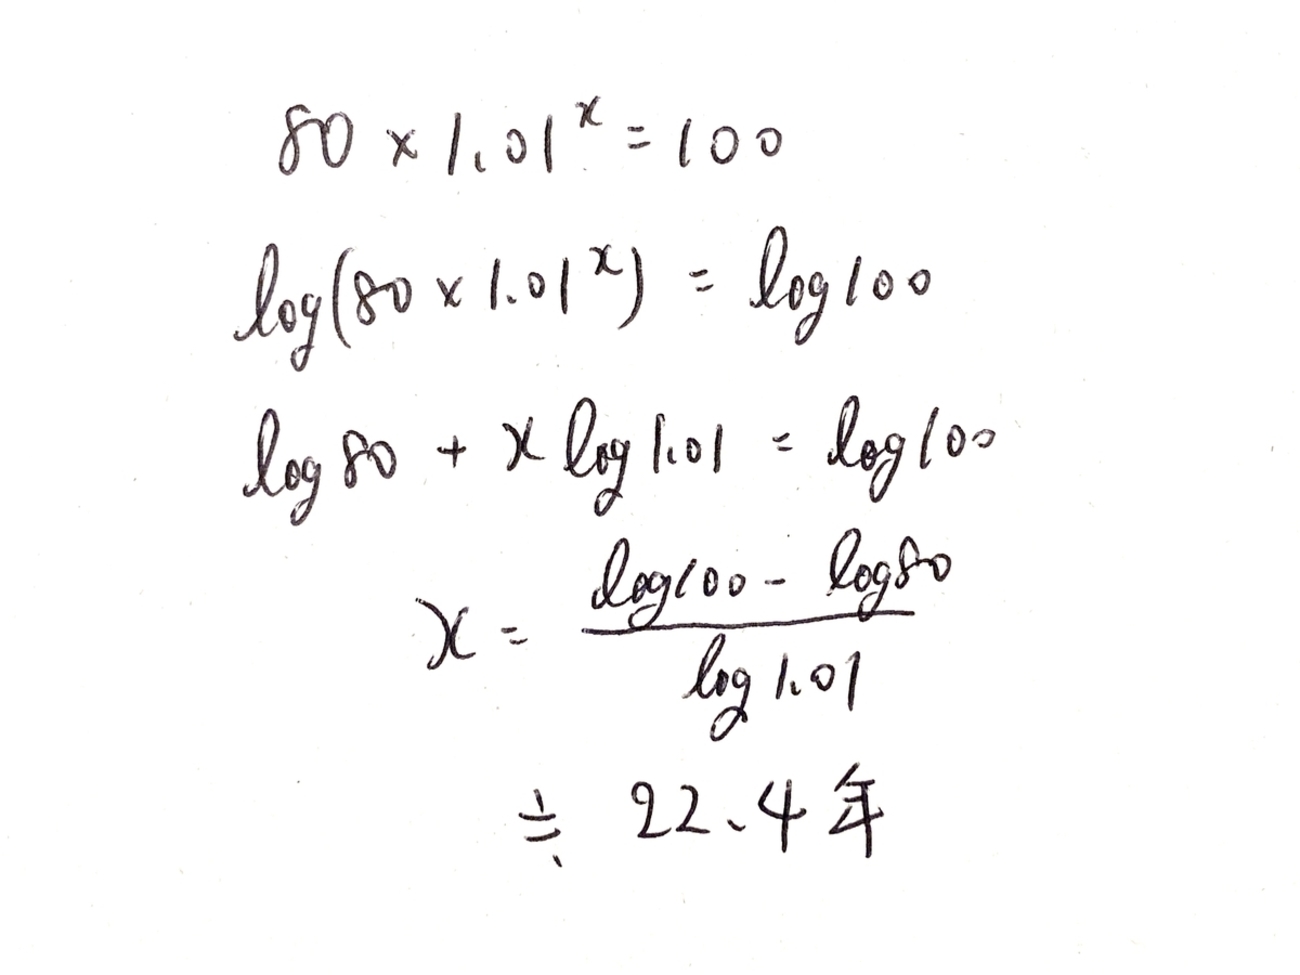 80 × 1.01^x = 100
log(80 × 1.01^x) = log100
log80 + x log1.01 = log100
x = (log100 - log80) / log1.01
≒ 22.4年